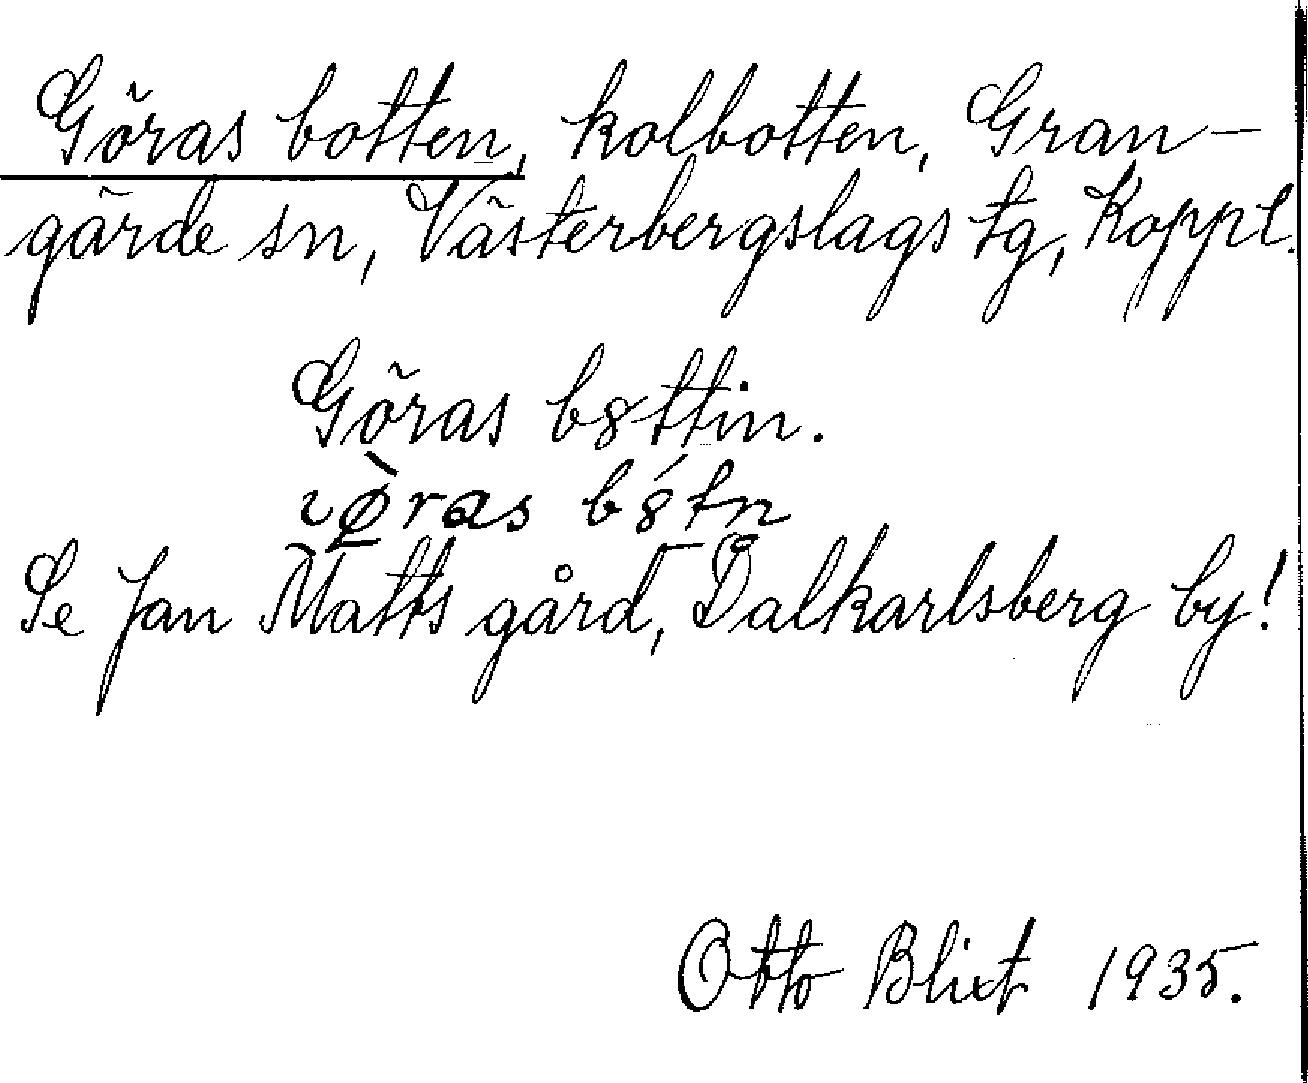 Göras botten, kolbotten, Gran-
gärde sn, Västerbergslags tg, Koppl.
Göras b8ttin.
ɩø̀ras b8́tn
Se Jan Matts gård, Dalkarlsberg by!
Otto Blixt 1935.